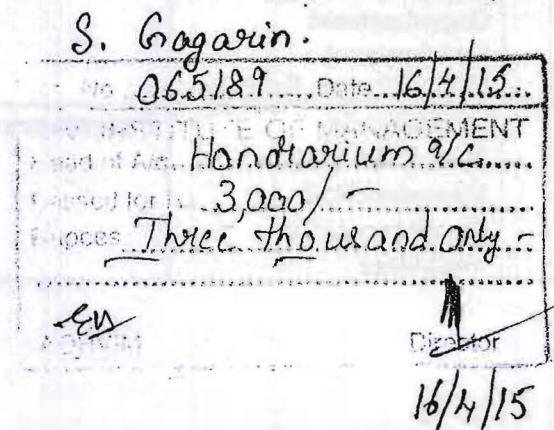 S. Gagarin.
No. 065189 Date 16/4/15
INSTITUTE OF MANAGEMENT
Head of A/c. Honorarium a/c
Passed for 3,000/-
Rupees Three thousand only -
Director
16/4/15